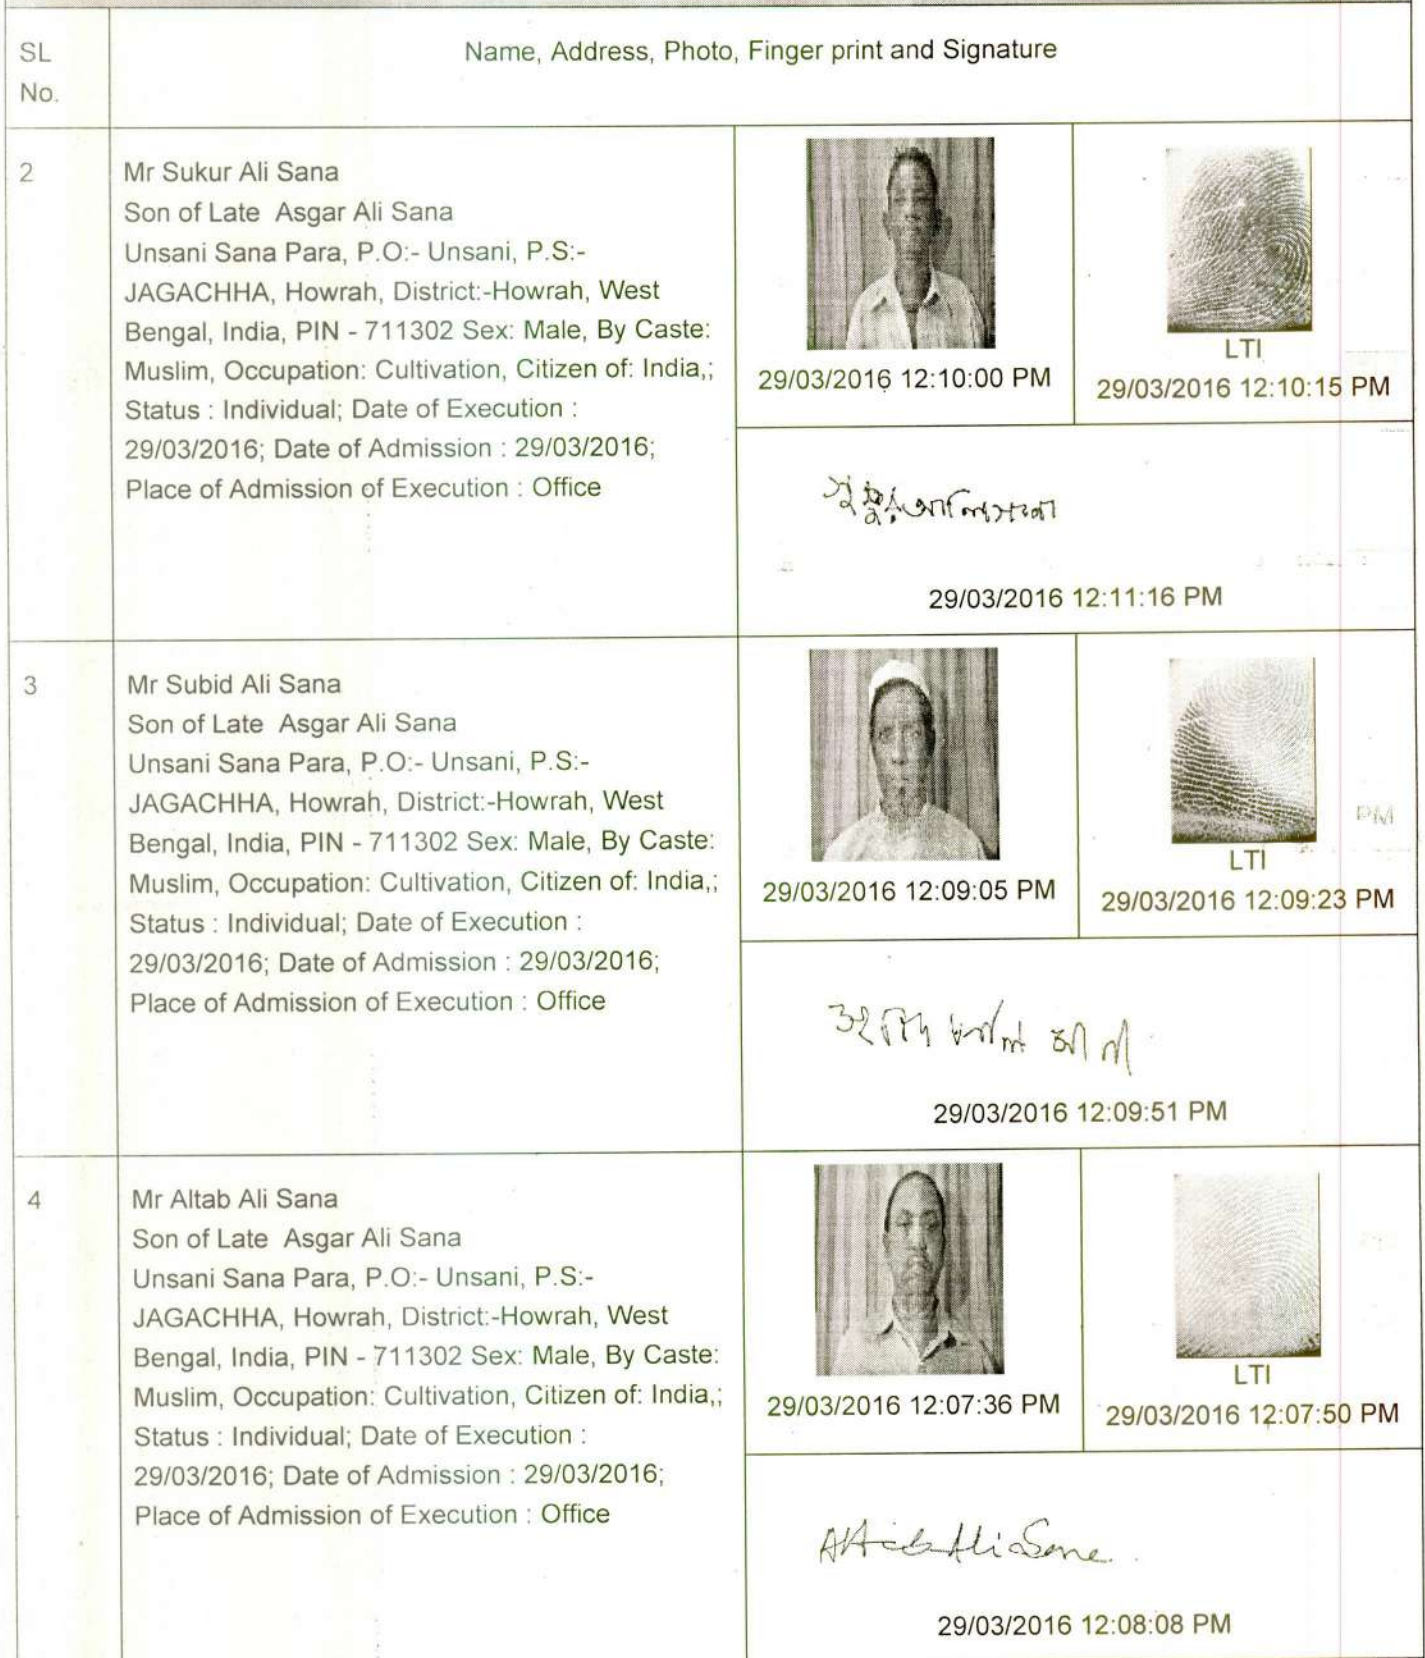 SL
No.
Name, Address, Photo, Finger print and Signature
2
Mr Sukur Ali Sana
Son of Late Asgar Ali Sana
Unsani Sana Para, P.O:- Unsani, P.S:-
JAGACHHA, Howrah, District:-Howrah, West
Bengal, India, PIN - 711302 Sex: Male, By Caste:
Muslim, Occupation: Cultivation, Citizen of: India,;
Status : Individual; Date of Execution :
29/03/2016; Date of Admission : 29/03/2016;
Place of Admission of Execution : Office
29/03/2016 12:10:00 PM
LTI
29/03/2016 12:10:15 PM
29/03/2016 12:11:16 PM
3
Mr Subid Ali Sana
Son of Late Asgar Ali Sana
Unsani Sana Para, P.O:- Unsani, P.S:-
JAGACHHA, Howrah, District:-Howrah, West
Bengal, India, PIN - 711302 Sex: Male, By Caste:
Muslim, Occupation: Cultivation, Citizen of: India,;
Status : Individual; Date of Execution :
29/03/2016; Date of Admission : 29/03/2016;
Place of Admission of Execution : Office
29/03/2016 12:09:05 PM
LTI
29/03/2016 12:09:23 PM
PM
29/03/2016 12:09:51 PM
4
Mr Altab Ali Sana
Son of Late Asgar Ali Sana
Unsani Sana Para, P.O:- Unsani, P.S:-
JAGACHHA, Howrah, District:-Howrah, West
Bengal, India, PIN - 711302 Sex: Male, By Caste:
Muslim, Occupation: Cultivation, Citizen of: India,;
Status : Individual; Date of Execution :
29/03/2016; Date of Admission : 29/03/2016;
Place of Admission of Execution : Office
29/03/2016 12:07:36 PM
LTI
29/03/2016 12:07:50 PM
Ali Sana
29/03/2016 12:08:08 PM